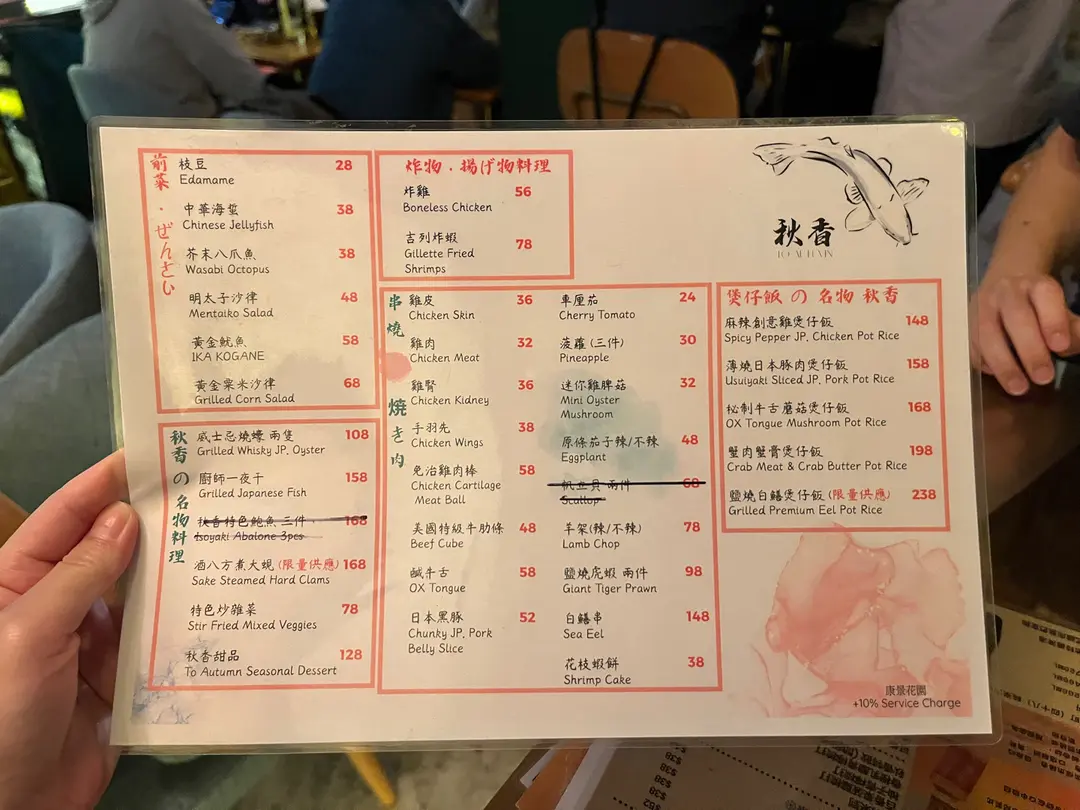 前菜・ぜんさい
枝豆 28
Edamame
中華海蜇 38
Chinese Jellyfish
芥末八爪魚 38
Wasabi Octopus
明太子沙律 48
Mentaiko Salad
黃金魷魚 58
IKA KOGANE
黃金粟米沙律 68
Grilled Corn Salad
秋香の名物料理
威士忌燒蠔 兩隻 108
Grilled Whisky JP. Oyster
廚師一夜干 158
Grilled Japanese Fish
秋香特色鮑魚 三件 168
Isoyaki Abalone 3pcs
酒八方煮大蜆 (限量供應) 168
Sake Steamed Hard Clams
特色炒雜菜 78
Stir Fried Mixed Veggies
秋香甜品 128
To Autumn Seasonal Dessert
炸物．揚げ物料理
炸雞 56
Boneless Chicken
吉列炸蝦 78
Gillette Fried
Shrimps
串燒 焼き肉
雞皮 36
Chicken Skin
雞肉 32
Chicken Meat
雞腎 36
Chicken Kidney
手羽先 38
Chicken Wings
免治雞肉棒 58
Chicken Cartilage
Meat Ball
美國特級牛肋條 48
Beef Cube
鹹牛舌 58
OX Tongue
日本黑豚 52
Chunky JP. Pork
Belly Slice
車厘茄 24
Cherry Tomato
菠蘿 (三件) 30
Pineapple
迷你雞脾菇 32
Mini Oyster
Mushroom
原條茄子辣/不辣 48
Eggplant
帆立貝 兩件 68
Scallop
羊架(辣/不辣) 78
Lamb Chop
鹽燒虎蝦 兩件 98
Giant Tiger Prawn
白鱔串 148
Sea Eel
花枝蝦餅 38
Shrimp Cake
秋香
TO AUTUMN
煲仔飯 の 名物 秋香
麻辣創意雞煲仔飯 148
Spicy Pepper JP. Chicken Pot Rice
薄燒日本豚肉煲仔飯 158
Usuiyaki Sliced JP. Pork Pot Rice
秘制牛舌蘑菇煲仔飯 168
OX Tongue Mushroom Pot Rice
蟹肉蟹膏煲仔飯 198
Crab Meat & Crab Butter Pot Rice
鹽燒白鱔煲仔飯 (限量供應) 238
Grilled Premium Eel Pot Rice
康景花園
+10% Service Charge